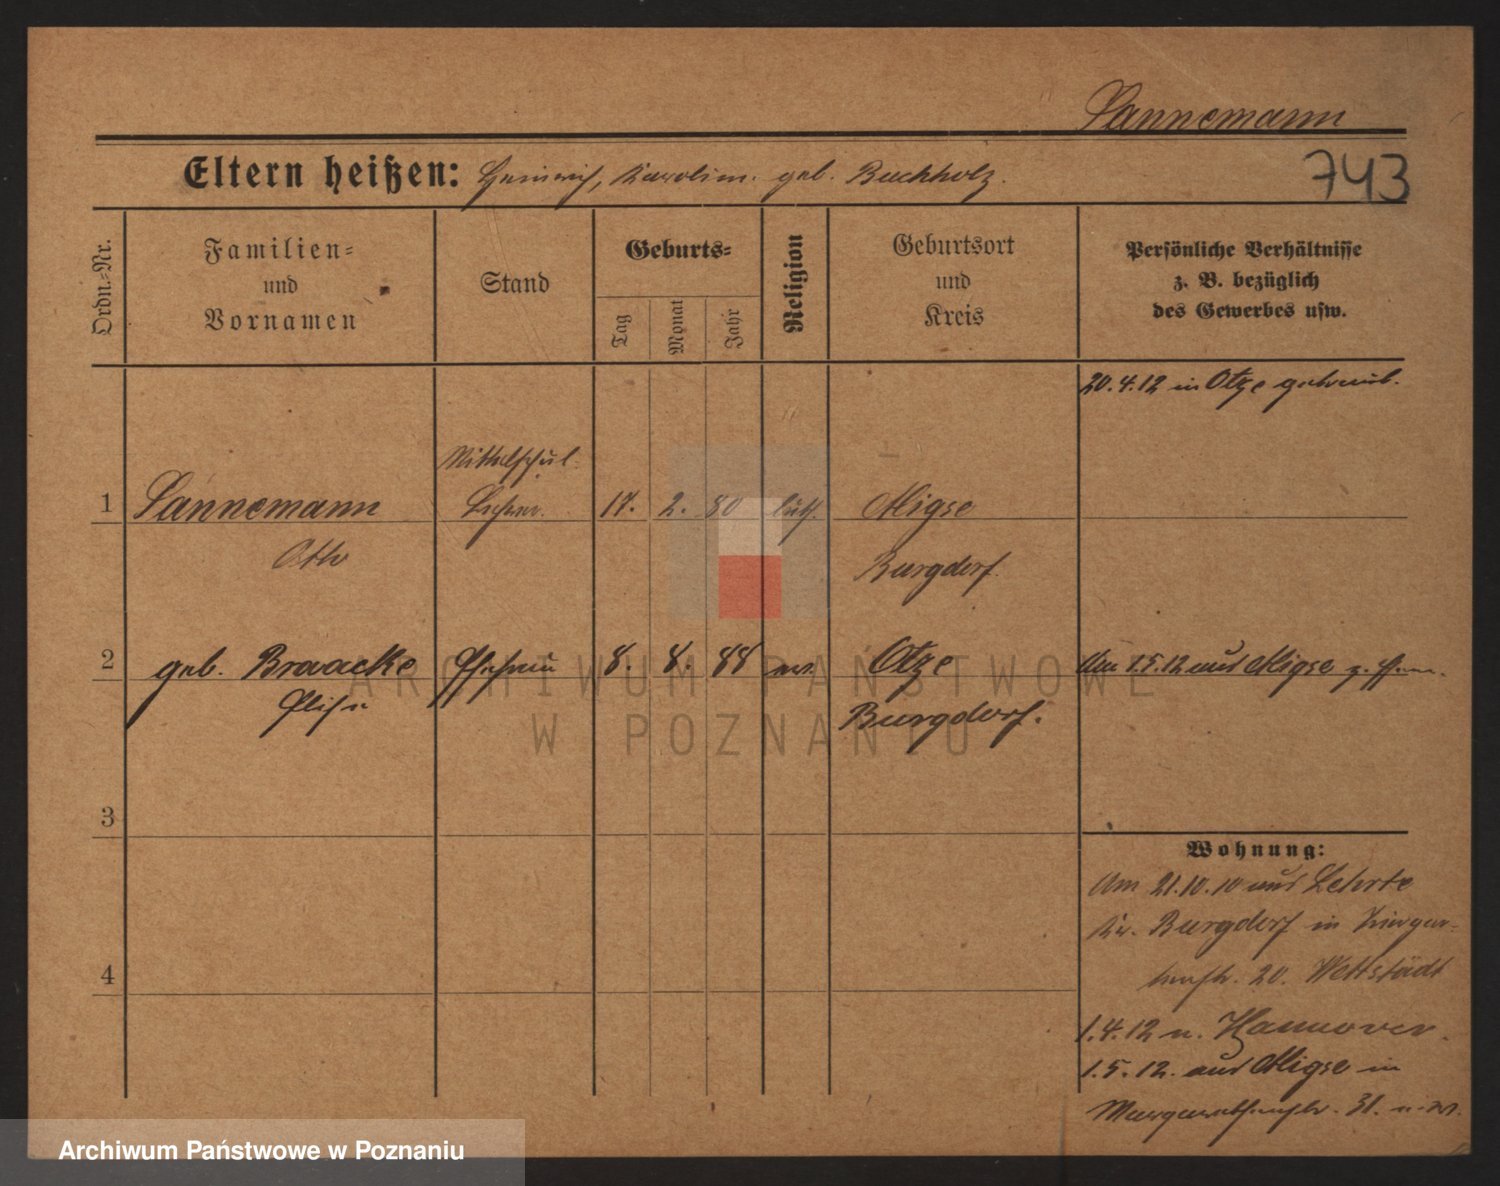 Sannemann
Eltern heißen: Heinrich, Karolin. geb. Buchholz.
743
Ordn.=Nr.
Familien=
und
Vornamen
Stand
Geburts=
Tag
Monat
Jahr
Religion
Geburtsort
und
Kreis
Persönliche Verhältnisse
z. B. bezüglich
des Gewerbes usw.
20.4.12 in Otze getraut.
Mittelschul-
1 Sannemann Lehrer. 17. 2. 80 luth. Aligse
Otto Burgdorf.
2 geb. Braacke Ehefrau 8. 8. 88 ev. Otze Am 1.5.12 aus Aligse z.
Elise Burgdorf.
3
4
Wohnung:
Am 21.10.10 aus Lehrte
Kr. Burgdorf in
20. Wettstädt
1.4.12 n. Hannover.
1.5.12. aus Aligse in
Margarethenstr. 31.
ARCHIWUM PAŃSTWOWE
W POZNANIU
Archiwum Państwowe w Poznaniu